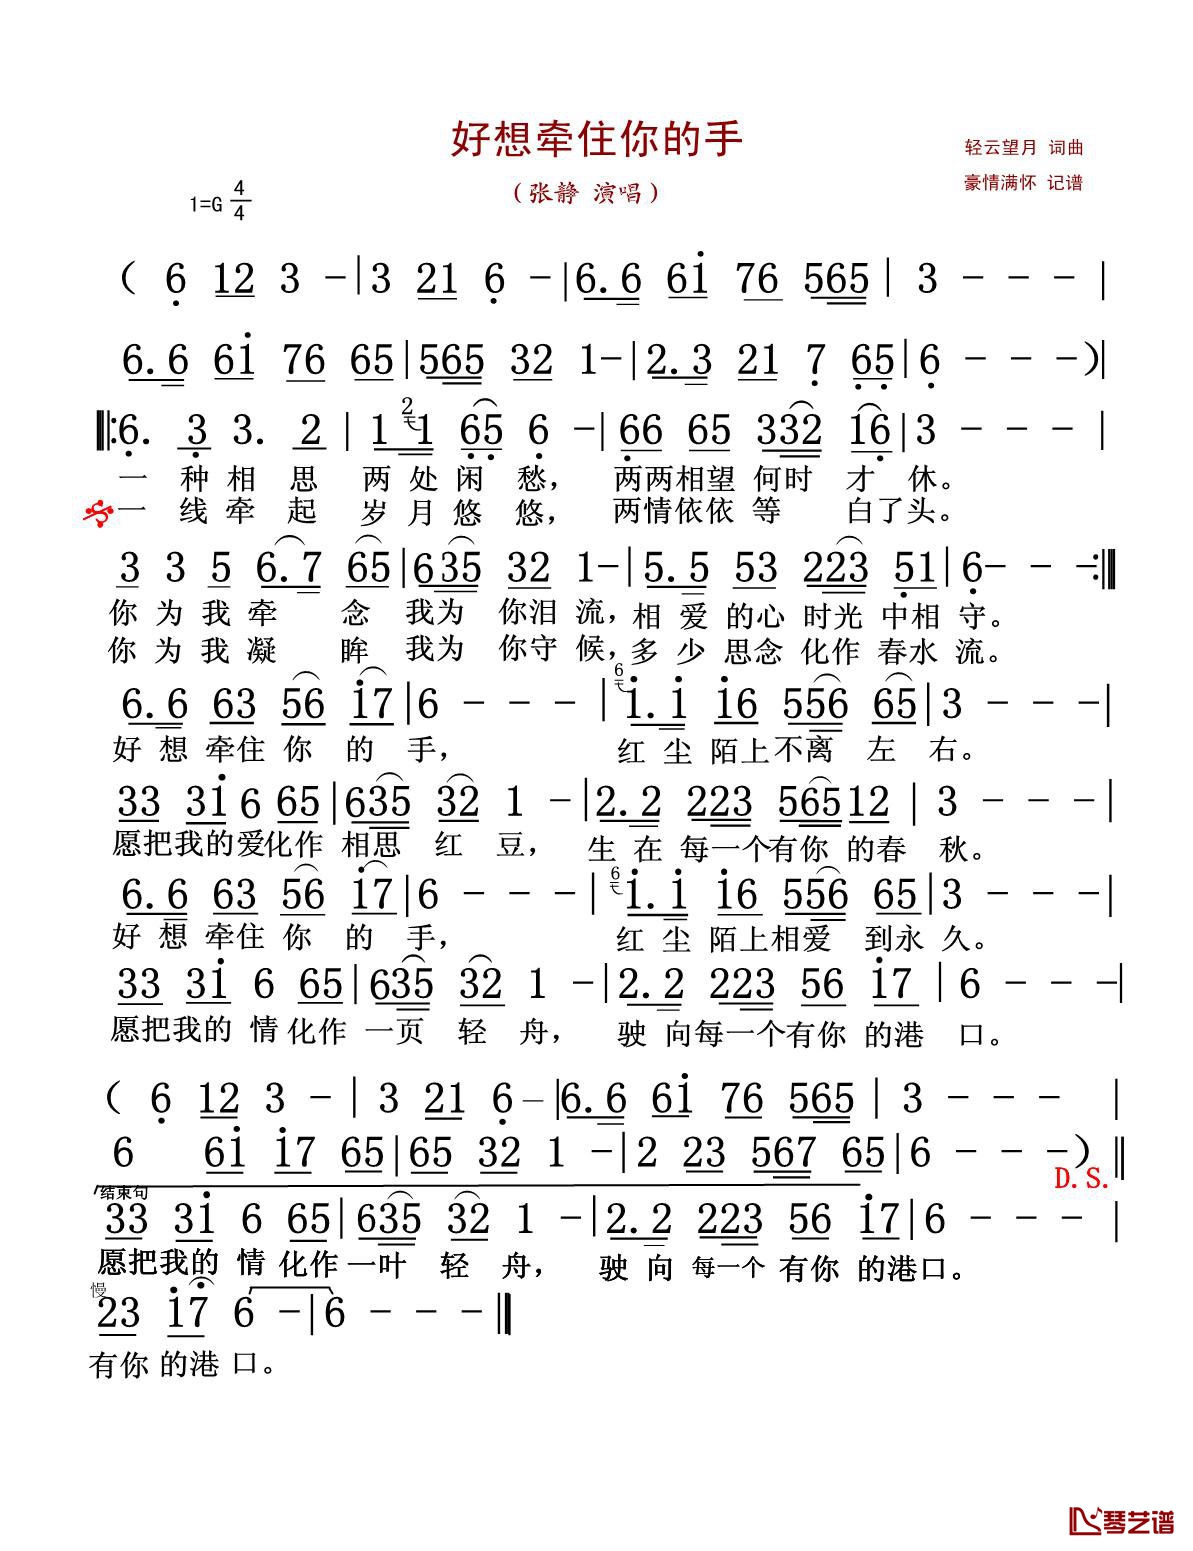 好想牵住你的手
（张静 演唱）
轻云望月 词曲
豪情满怀 记谱
1=G 4/4
（ 6 12 3 －|3 21 6 －|6.6 61 76 565| 3 － － － |
6.6 61 76 65|565 32 1－|2.3 21 7 65|6 － － －）|
‖:6. 3 3. 2 | 1 2 1 65 6 －|66 65 332 16|3 － － － |
一 种 相 思 两 处 闲 愁， 两两相望 何时 才 休。
一 线 牵 起 岁 月 悠 悠， 两情依依 等 白了头。
3 3 5 6.7 65|635 32 1－|5.5 53 223 51|6－ － －:‖
你 为 我 牵 念 我为 你泪 流，相 爱 的心 时光 中相 守。
你 为 我 凝 眸 我为 你守 候，多 少 思念 化作 春水 流。
6.6 63 56 17|6 － － － | 6 1.1 16 556 65|3 － － －|
好 想 牵住 你 的 手， 红 尘 陌上 不离 左 右。
33 31 6 65|635 32 1 －|2.2 223 56512 | 3 － － － |
愿把我的爱化作 相思 红 豆， 生 在 每一个有你 的春 秋。
6.6 63 56 17|6 － － － | 6 1.1 16 556 65|3 － － － |
好 想 牵住 你 的 手， 红 尘 陌上相爱 到永 久。
33 31 6 65|635 32 1 －|2.2 223 56 17 | 6 － － －|
愿把我的 情 化作 一页 轻 舟， 驶 向每一个有你 的港 口。
（ 6 12 3 － | 3 21 6 — |6.6 61 76 565 | 3 － － － |
6 61 17 65|65 32 1 －|2 23 567 65|6 － － －）‖
D.S.
结束句
33 31 6 65|635 32 1 －|2.2 223 56 17|6 － － － |
愿把我的 情 化作 一叶 轻 舟， 驶 向 每一个 有你 的港口。
慢
23 17 6 －|6 － － －‖
有你 的港 口。
琴艺谱